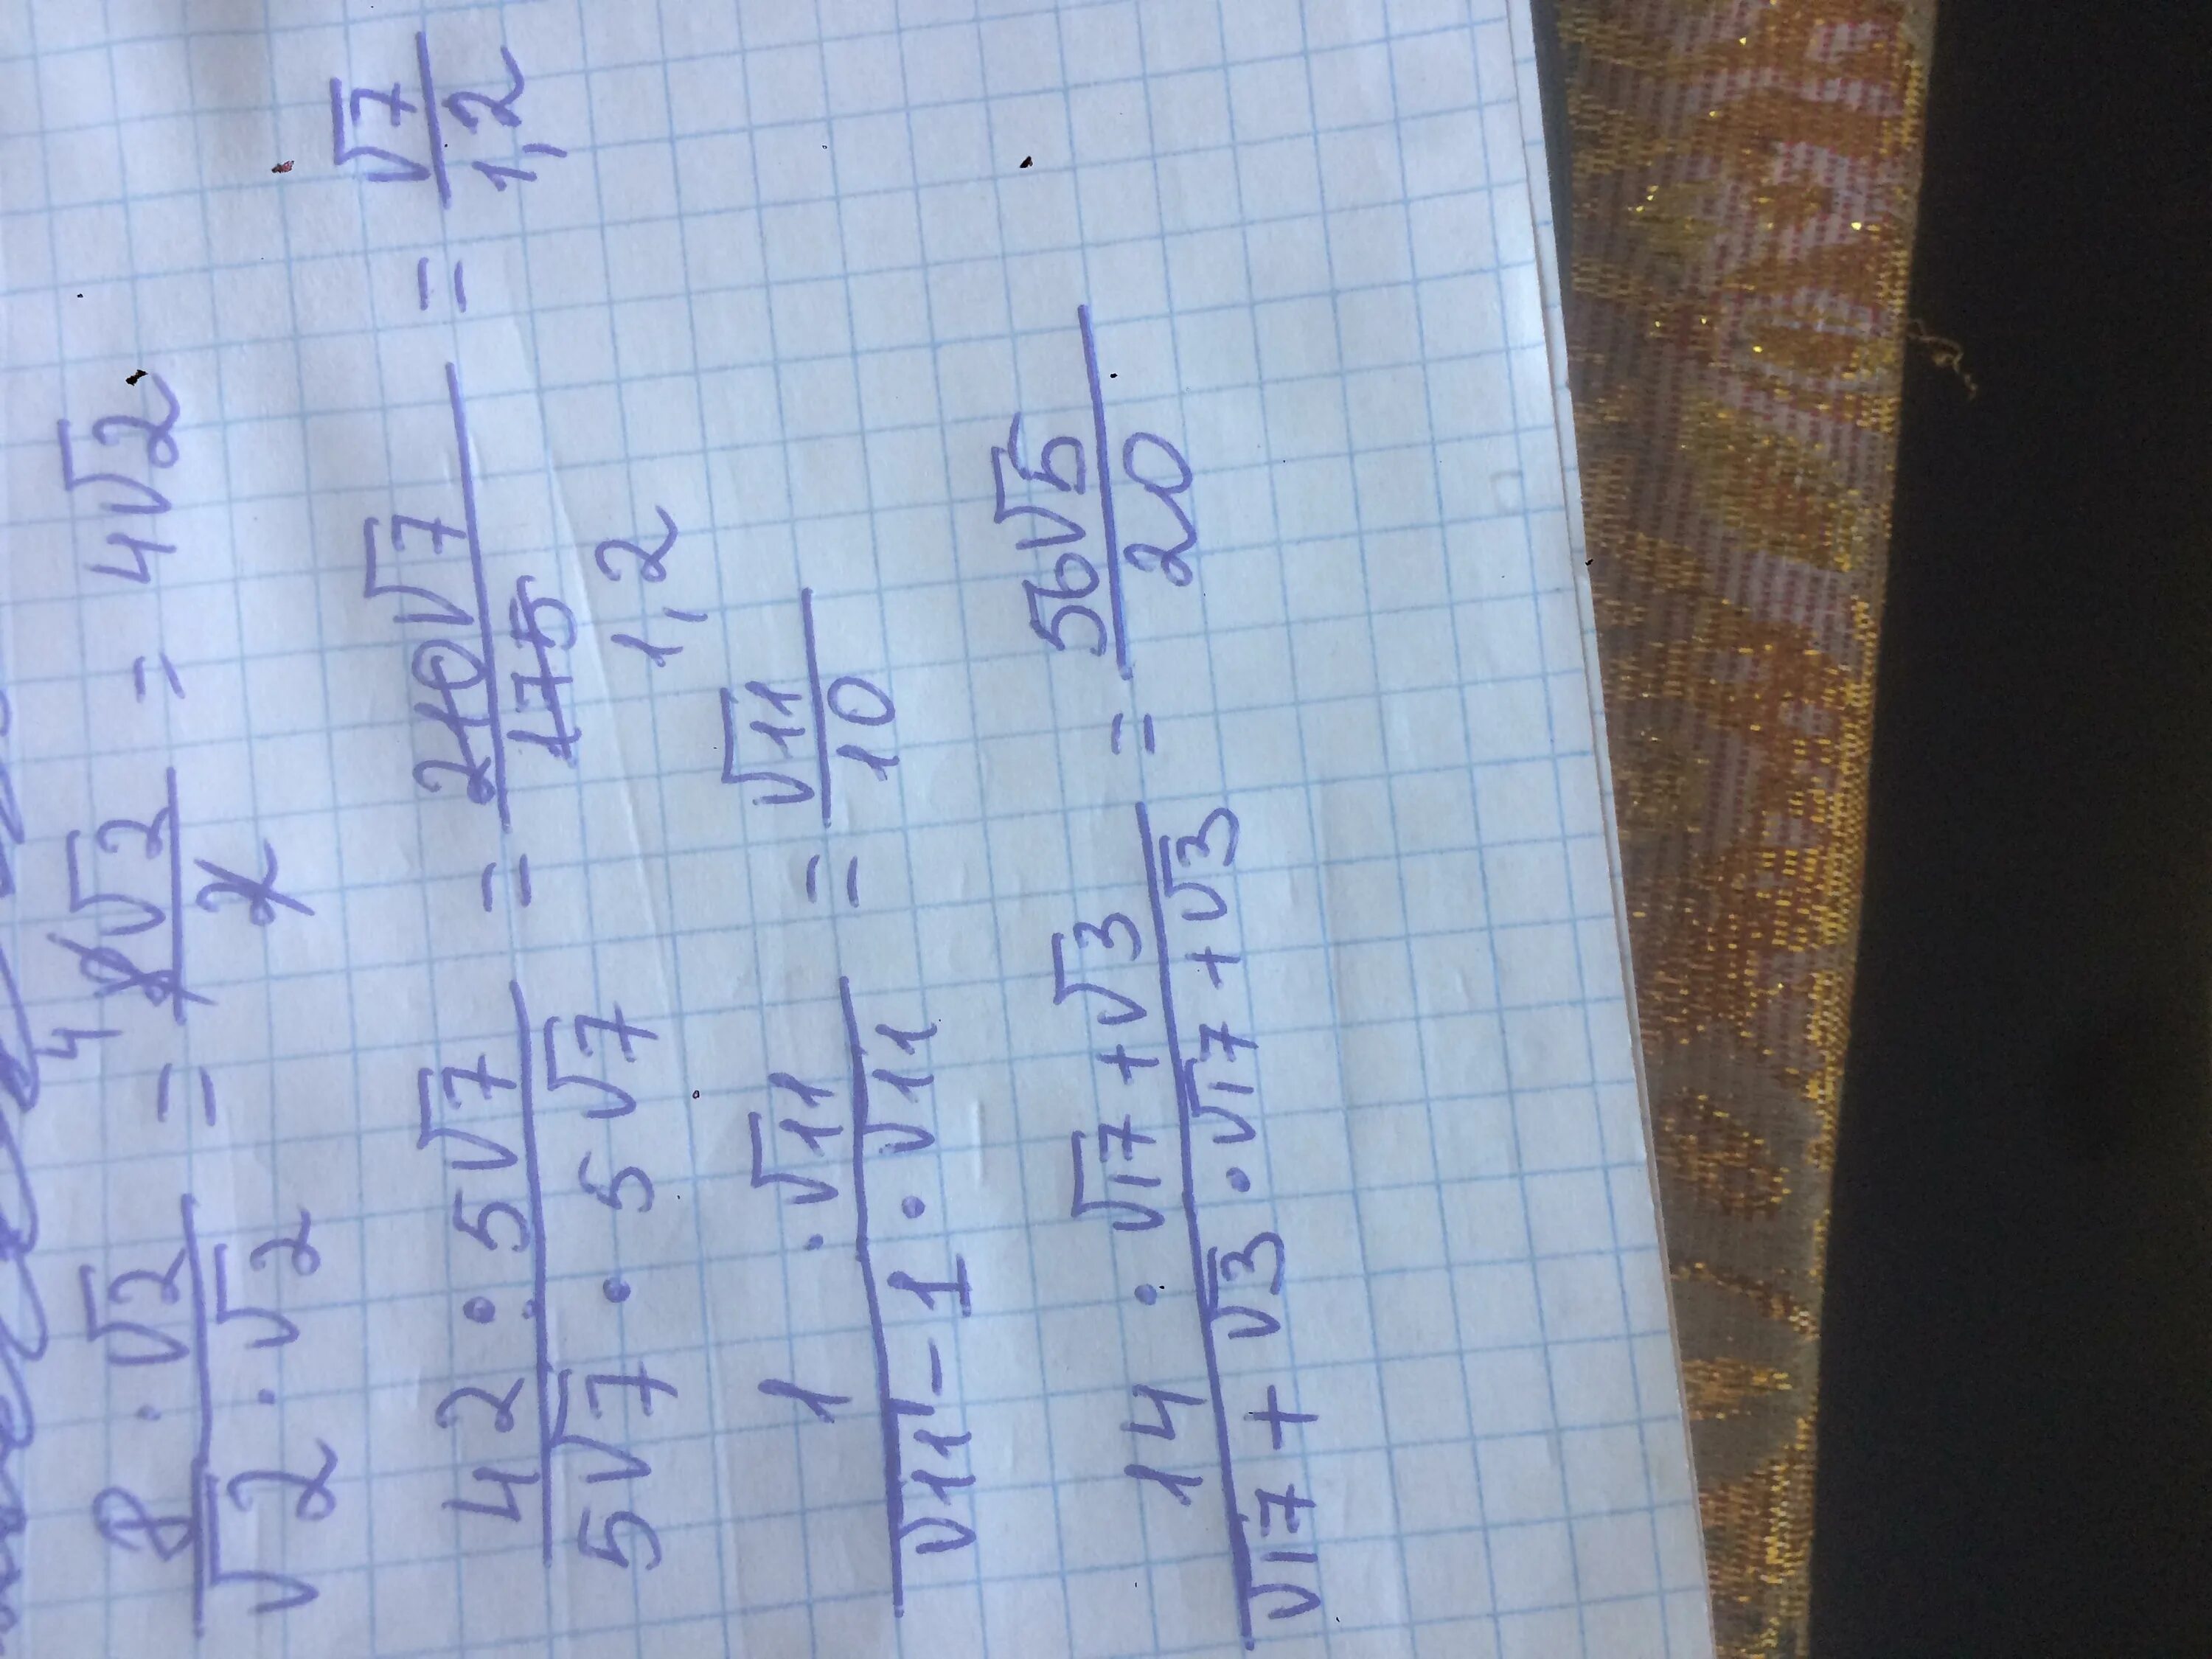 8 · √2 / √2 · √2 = 4 8√2 / 2 = 4√2
42 · 5√7 / 5√7 · 5√7 = 210√7 / 175 = √7 / 1,2
1,2
1 · √11 / √11 - 1 · √11 = √11 / 10
14 · √17 + √3 / √17 + √3 · √17 + √3 = 56√5 / 20